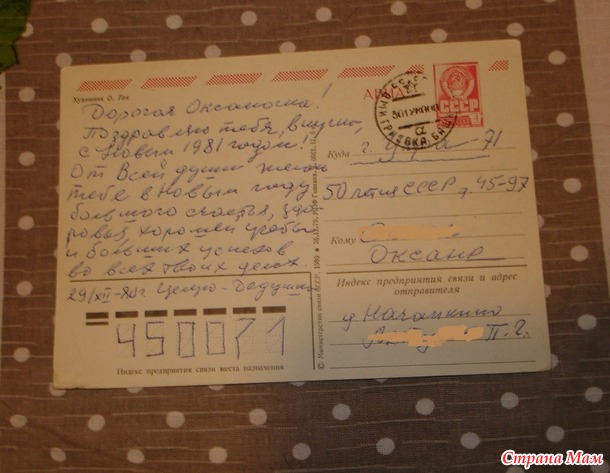 Художник О. Гех
АВИА
СССР
Дорогая Оксаночка!
Поздравляю тебя, внучка,
с Новым 1981 годом!
От всей души желаю
тебе в Новом году
большого счастья, здо-
ровья, хорошей учебы
и больших успехов
во всех твоих делах.
29/XII-80г Целую - Дедушка
450071
Индекс предприятия связи места назначения
© Министерство связи СССР, 1980
Куда г. Уфа-71
50 летия СССР д. 45-97
Кому
Оксане
Индекс предприятия связи и адрес
отправителя
П.Г.
Страна Мам